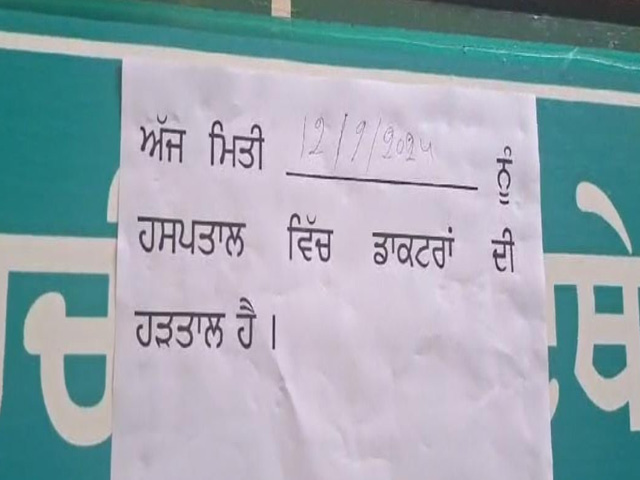 ਅੱਜ ਮਿਤੀ 12/9/2024 ਨੂੰ
ਹਸਪਤਾਲ ਵਿੱਚ ਡਾਕਟਰਾਂ ਦੀ
ਹੜਤਾਲ ਹੈ ।